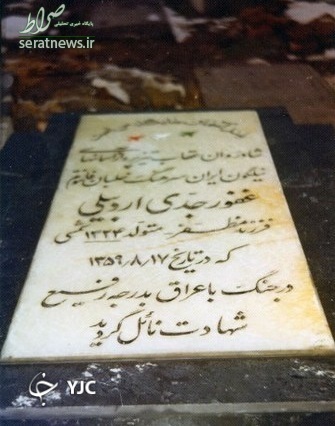 صراط
پایگاه خبری تحلیلی
seratnews.ir
شادروان
نیلگون ایران سرهنگ خلبان
غفور جدی اردبیلی
فرزند مظفر متولد ۱۳۲۴ شمسی
که در تاریخ ۱۳۵۹/۸/۱۷
در جنگ با عراق بدرجه رفیع
شهادت نائل گردید
YJC